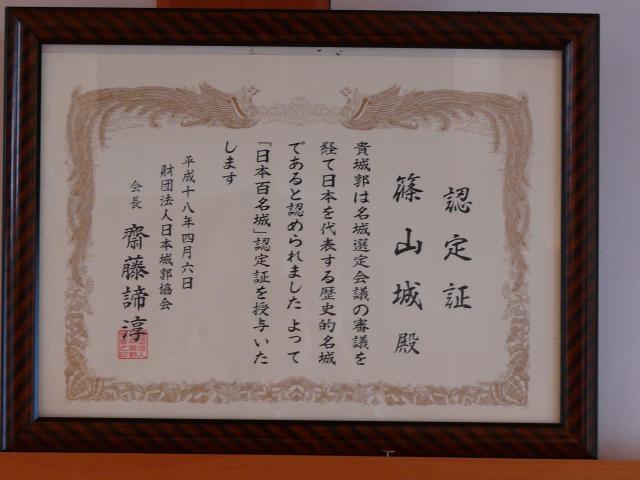 認定証
篠山城殿
貴城郭は名城選定会議の審議を
経て日本を代表する歴史的名城
であると認められました よって
「日本百名城」認定証を授与いた
します
平成十八年四月六日
財団法人日本城郭協会
会長 齋藤諦淳